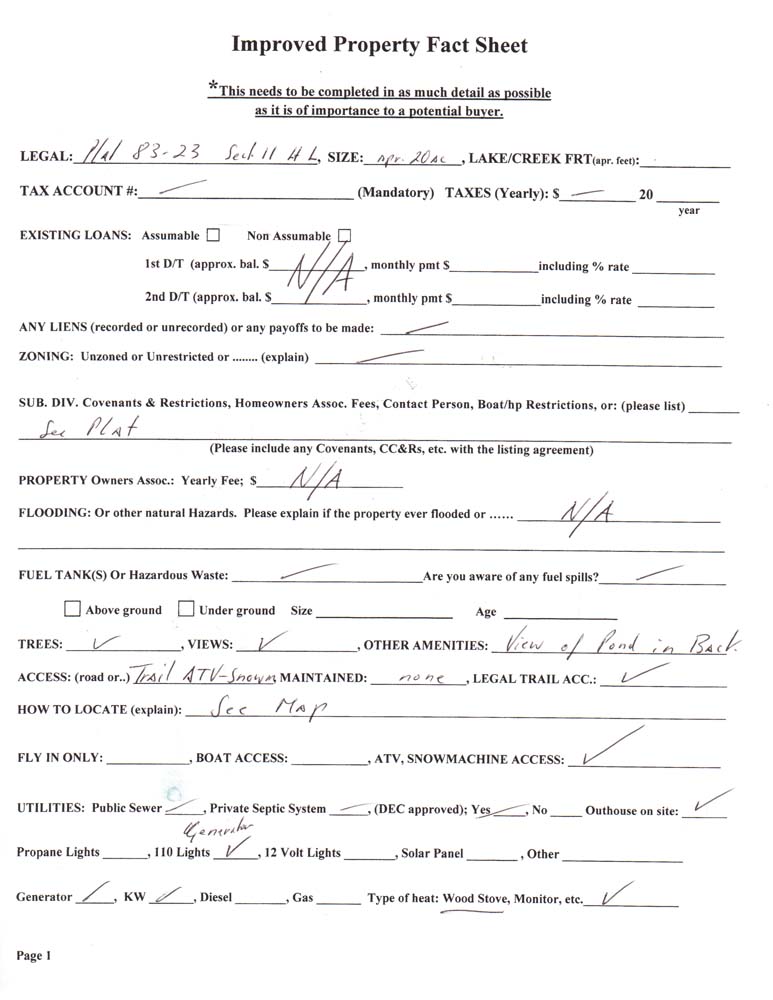 Improved Property Fact Sheet
*This needs to be completed in as much detail as possible
as it is of importance to a potential buyer.
LEGAL: Plat 83-23 Sect. 11 4 L, SIZE: apr. 20 ac, LAKE/CREEK FRT(apr. feet):
TAX ACCOUNT #: — (Mandatory) TAXES (Yearly): $ — 20
year
EXISTING LOANS: Assumable ☐ Non Assumable ☐
1st D/T (approx. bal. $ N/A, monthly pmt $ including % rate
2nd D/T (approx. bal. $, monthly pmt $ including % rate
ANY LIENS (recorded or unrecorded) or any payoffs to be made: —
ZONING: Unzoned or Unrestricted or ........ (explain) —
SUB. DIV. Covenants & Restrictions, Homeowners Assoc. Fees, Contact Person, Boat/hp Restrictions, or: (please list)
See Plat
(Please include any Covenants, CC&Rs, etc. with the listing agreement)
PROPERTY Owners Assoc.: Yearly Fee; $ N/A
FLOODING: Or other natural Hazards. Please explain if the property ever flooded or ...... N/A
FUEL TANK(S) Or Hazardous Waste: — Are you aware of any fuel spills? —
☐ Above ground ☐ Under ground Size Age
TREES: ✓, VIEWS: ✓, OTHER AMENITIES: View of Pond in Back.
ACCESS: (road or..) Trail ATV-Snowm MAINTAINED: none, LEGAL TRAIL ACC.: ✓
HOW TO LOCATE (explain): See Map
FLY IN ONLY: , BOAT ACCESS: , ATV, SNOWMACHINE ACCESS: ✓
UTILITIES: Public Sewer —, Private Septic System —, (DEC approved); Yes —, No Outhouse on site: ✓
Generator
Propane Lights , 110 Lights ✓, 12 Volt Lights , Solar Panel , Other
Generator ✓, KW ✓, Diesel , Gas Type of heat: Wood Stove, Monitor, etc. ✓
Page 1